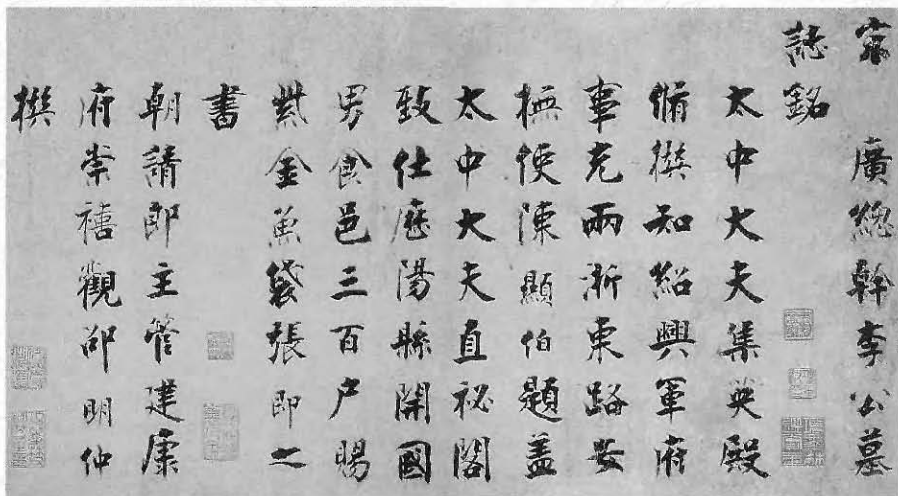 宋 廣總幹李公墓
誌銘
太中大夫集英殿
脩撰知紹興軍府
事充兩浙東路安
撫使陳顯伯題蓋
太中大夫直祕閣
致仕歷陽縣開國
男食邑三百户賜
紫金魚袋張即之
書
朝請郎主管建康
府崇禧觀邵明仲
撰